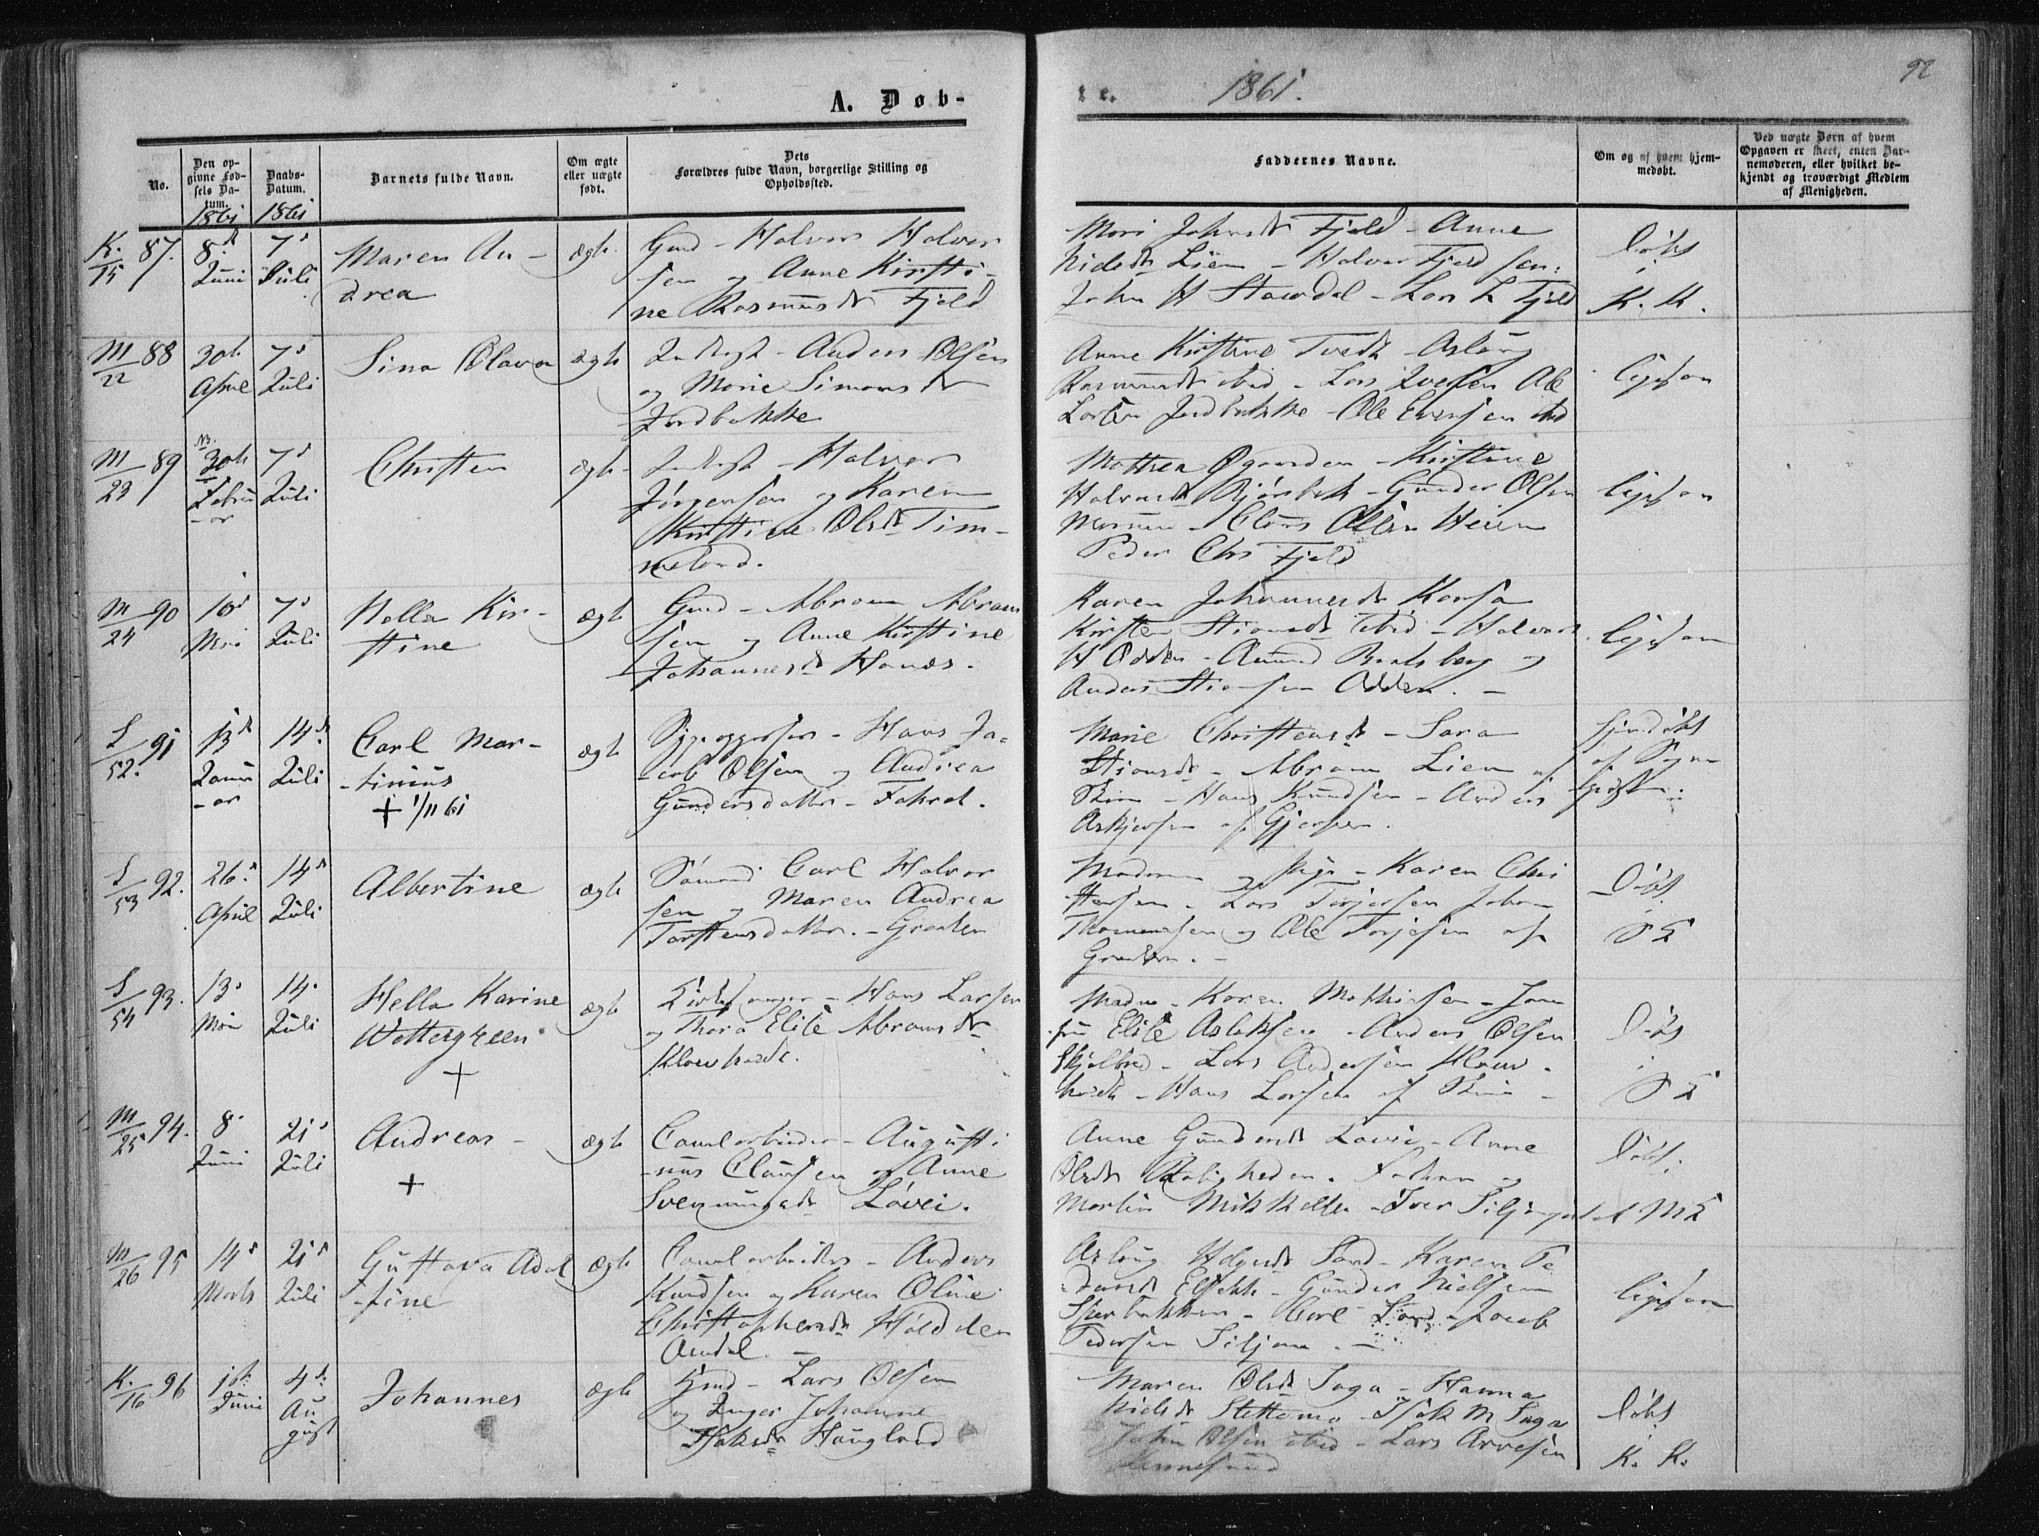 A. Døb-
te. 1861.
92
No.
Den op-
givne Fød-
sels Da-
tum.
1861
Daabs-
Datum.
1861
Barnets fulde Navn.
Om ægte
eller uægte
født.
Dets
Forældres fulde Navn, borgerlige Stilling og
Opholdssted.
Faddernes Navne.
Om og af hvem hjem-
medøbt.
Ved uægte Børn af hvem
Opgaven er skeet, enten Bar-
nemoderen, eller hvilket be-
kjendt og troværdigt Medlem
af Menigheden.
K./15 87. 8d Juni 7d Juli
Maren An-
drea
ægte
Gmd - Halvor Halvor
sen og Anne Kirsti-
ne Rasmusdt Fjeld
Mari Johnsdt Fjeld - Anne
Nielsdt Lien - Halvor Fjeld sen:
John H Stavdal - Lars L Fjeld
Døbt
i
K. K.
M/22 88 30te April 7d Juli
Sina Olava
ægte
Inderst - Anders Olsen
og Marie Simonsdt
Jordbakke
Anne Kirstine Tvedt - Aslaug
Rasmusdt ibid - Lars Iversen Ole
Larsen Jordbakke - Ole Evensen ibid
ligesaa
M/23 89 NB. 30te Februar 7d Juli
Christen
ægte
Inderst - Halvor
Jørgensen og Karen
Kirstine Olsdt Tim-
meland.
Mathea Øgaarden - Kirstine
Halvorsdt Bjørbek - Gunder Olsen
Moruun - Claus Olsen Heien
Peder Chr Fjeld
ligesaa
M/24 90 10d Mai 7d Juli
Hella Kir-
stine
ægte
Gmd - Abram Abram
sen og Anne Kirstine
Johannesdt Hanæs.
Karen Johannesdt
Kirsten ibid - Halvor
H Odden - Amund Bratsberg og
Anders Odden.
ligesaa
S/52. 91 13d Januar 14d Juli
Carl Mar-
tinius
+ 1/11 61
ægte
Hans Ja-
cob Olsen og Andrea
Gundersdatter -
Marie Christensdt - Sara
Abram Lien af
Skien - Hans Knudsen - Anders
af Gjerpen.
hjemdøbt
af Sogne-
præsten.
S/53 92. 26d April 14d Juli
Albertine
ægte
Sømand Carl Halvor
sen og Maren Andrea
Torstensdatter. - Graaten
Madam og Pige - Karen Chri
stensen - Lars Torjersen Johan
Thommesen og Ole Torjesen af
Graaten.
Døbt
i
S K
S/54 93. 13d Mai 14. Juli
Hella Karine
Wettergreen
+
ægte
Kirkesanger - Hans Larsen
og Thora Elise Abramsdt
Klovholt.
Madm - Karen Mathisen - Jom
fru Elise Aslaksen - Anders Olsen
Skjelbred - Lars Andersen Klov-
holt - Hans Larsen af Skien -
Døbt
i
S K
M/25 94. 8. Juni 21d Juli
Andreas -
+
ægte
Canalarbeider - Augusti
nus Clausen og Anne
Svennungsdt Løvei.
Anne Gundersdt Løvei - Anne
Olsdt Roligheden. Faderen og
Martin Mikkelsen - Iver
Døbt i
M K
M/26 95 14d Marts 21d Juli
Gustava Adol
fine
ægte
Canalarbeider - Anders
Knudsen og Karen Oline
Christophersdt Holdalen
Aamdal.
Aslaug Helgesdt Sand - Karen Pe
dersdt - Gunder Nielsen
- Carl - Jacob
Pedersen Siljan.
ligesaa
K./16 96 10de Juni 4d August
Johannes
ægte
Gmd - Lars Olsen
og Inger Johanne
Isaksdt Haugland
Maren Olsdt Saga - Hanna
Nielsdt Isak M Saga
John Olsen ibid - Lars Arvesen
Døbt
K. K.